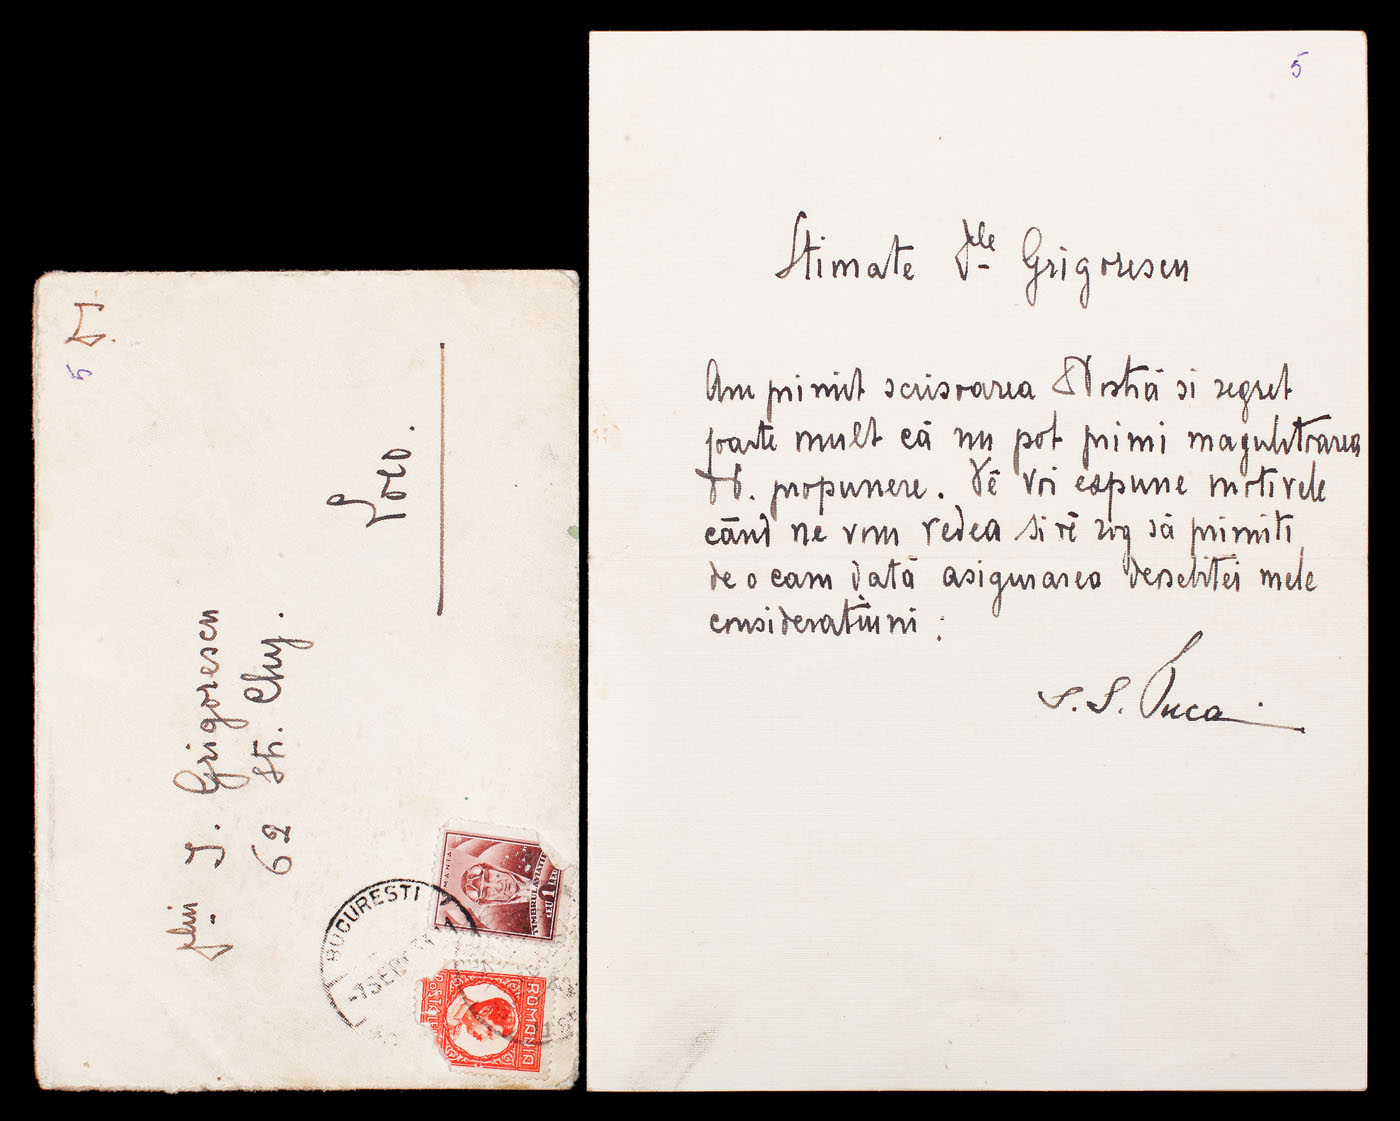 5
Stimate Dle Grigorescu
Am primit scrisoarea Dvostră si regret
foarte mult că nu pot primi magulitoarea
Dv. propunere. Vĕ voi expune motivele
când ne vom vedea si vĕ rog să primiti
de o cam dată asigurarea deosebitei mele
consideratiuni :
S. S.
5
Dlui I. Grigorescu
62 Str.
Loco.
BUCURESTI
ROMANIA
TIMBRUL AVIATIEI
1 LEU
ROMANIA
POSTA